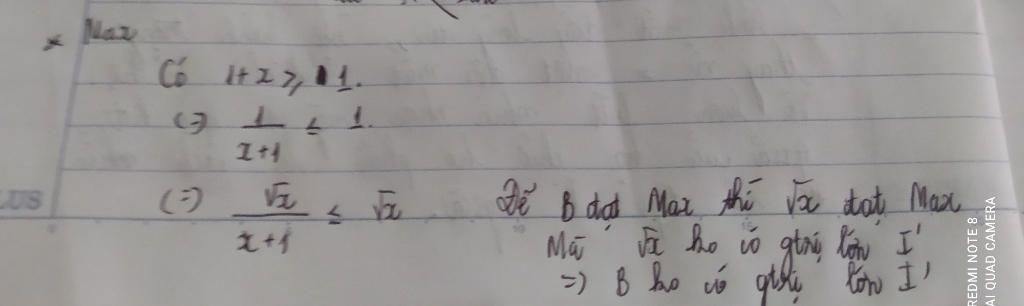 * Max
Có 1+x ≥ 1.
(=) 1/(x+1) ≤ 1.
(=) √x/(x+1) ≤ √x Để B đạt Max thì √x đạt Max
Mà √x ko có gtrị lớn I'
=) B ko có gtrị lớn I'
LUS
REDMI NOTE 8
AI QUAD CAMERA